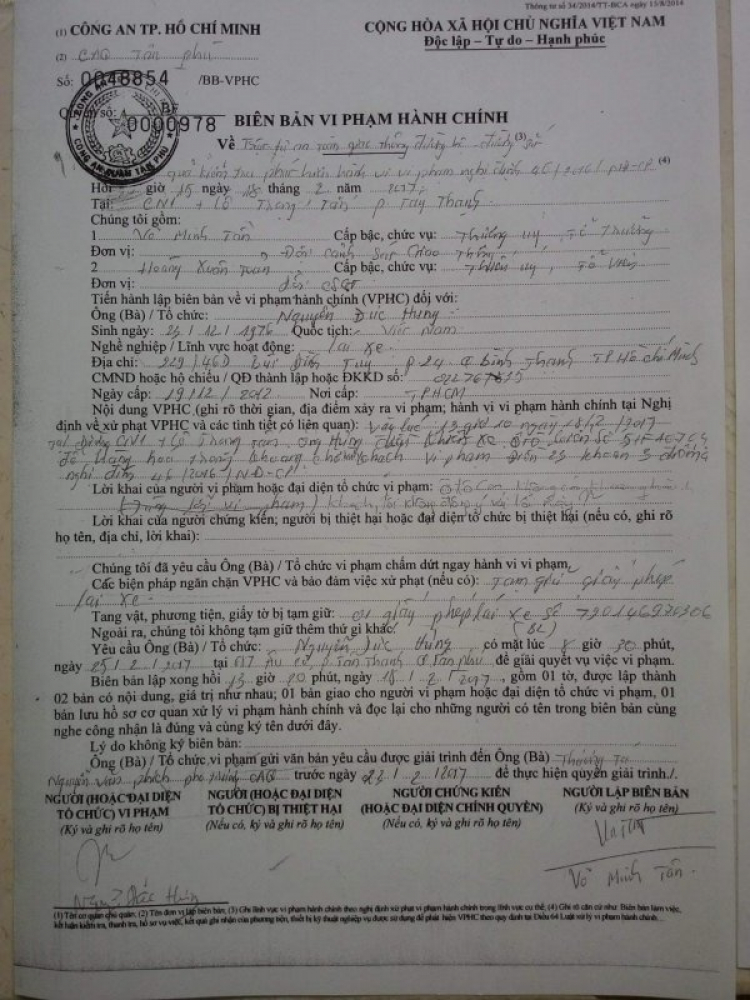 Thông tư số 34/2014/TT-BCA ngày 15/8/2014
(1) CÔNG AN TP. HỒ CHÍ MINH
CỘNG HÒA XÃ HỘI CHỦ NGHĨA VIỆT NAM
Độc lập – Tự do – Hạnh phúc
(2) CAQ Tân Phú
Số: 0048854 /BB-VPHC
Quyển số: 0000978
CÔNG AN QUẬN TÂN PHÚ
BIÊN BẢN VI PHẠM HÀNH CHÍNH
Về Trật tự an toàn giao thông đường bộ - đường sắt (3)
vi phạm nghị định 46/2016/NĐ-CP (4)
Hồi giờ 15 ngày 18 tháng 2 năm 2017
Tại: CN1 + Lê Trọng Tấn P. Tây Thạnh
Chúng tôi gồm:
1 Võ Minh Tấn Cấp bậc, chức vụ: Thượng úy, Tổ Trưởng
Đơn vị: Đội Cảnh Sát Giao Thông
2 Hoàng Xuân Cấp bậc, chức vụ: Thiếu úy, Tổ Viên
Đơn vị: Đội CSGT
Tiến hành lập biên bản về vi phạm hành chính (VPHC) đối với:
Ông (Bà) / Tổ chức: Nguyễn Đức Hưng
Sinh ngày: /12/1976 Quốc tịch: Việt Nam
Nghề nghiệp / Lĩnh vực hoạt động: Lái xe
Địa chỉ: 229/46D P 24 Q Bình Thạnh TP Hồ Chí Minh
CMND hoặc hộ chiếu / QĐ thành lập hoặc ĐKKD số:
Ngày cấp: 19/12/2012 Nơi cấp: TPHCM
Nội dung VPHC (ghi rõ thời gian, địa điểm xảy ra vi phạm; hành vi vi phạm hành chính tại Nghị
định về xử phạt VPHC và các tình tiết có liên quan): Vào lúc 15 giờ 10 ngày 18/2/2017
tại đường CN1 + Lê Trọng Tấn, ông Hưng điều khiển xe ôtô biển số
để hàng hóa trong khoang chở hành khách vi phạm điều 23 khoản 3
nghị định 46/2016/NĐ-CP
Lời khai của người vi phạm hoặc đại diện tổ chức vi phạm:
Lời khai của người chứng kiến; người bị thiệt hại hoặc đại diện tổ chức bị thiệt hại (nếu có, ghi rõ
họ tên, địa chỉ, lời khai):
Chúng tôi đã yêu cầu Ông (Bà) / Tổ chức vi phạm chấm dứt ngay hành vi vi phạm.
Các biện pháp ngăn chặn VPHC và bảo đảm việc xử phạt (nếu có): Tạm giữ giấy phép
lái xe
Tang vật, phương tiện, giấy tờ bị tạm giữ: 01 giấy phép lái xe số 790146970306
Ngoài ra, chúng tôi không tạm giữ thêm thứ gì khác.
Yêu cầu Ông (Bà) / Tổ chức: Nguyễn Đức Hưng có mặt lúc 8 giờ 30 phút,
ngày 25/2/2017 tại Âu Cơ, P. Tân Thành Q Tân Phú để giải quyết vụ việc vi phạm.
Biên bản lập xong hồi 15 giờ 20 phút, ngày 18/2/2017, gồm 01 tờ, được lập thành
02 bản có nội dung, giá trị như nhau; 01 bản giao cho người vi phạm hoặc đại diện tổ chức vi phạm, 01
bản lưu hồ sơ cơ quan xử lý vi phạm hành chính và đọc lại cho những người có tên trong biên bản cùng
nghe công nhận là đúng và cùng ký tên dưới đây.
Lý do không ký biên bản:
Ông (Bà) / Tổ chức vi phạm gửi văn bản yêu cầu được giải trình đến Ông (Bà) Thượng Tá
Nguyễn Văn phó trưởng CAQ trước ngày 23/2/2017 để thực hiện quyền giải trình./.
NGƯỜI (HOẶC ĐẠI DIỆN
TỔ CHỨC) VI PHẠM
(Ký và ghi rõ họ tên)
NGƯỜI (HOẶC ĐẠI DIỆN
TỔ CHỨC) BỊ THIỆT HẠI
(Nếu có, ký và ghi rõ họ tên)
NGƯỜI CHỨNG KIẾN
(HOẶC ĐẠI DIỆN CHÍNH QUYỀN)
(Nếu có, ký và ghi rõ họ tên)
NGƯỜI LẬP BIÊN BẢN
(Ký và ghi rõ họ tên)
Võ Minh Tấn
(1) Tên cơ quan chủ quản; (2) Tên đơn vị lập biên bản; (3) Ghi lĩnh vực vi phạm hành chính theo nghị định xử phạt vi phạm hành chính trong lĩnh vực cụ thể; (4) Ghi rõ căn cứ như: Biên bản làm việc,
kết luận kiểm tra, thanh tra, hồ sơ vụ việc, kết quả ghi nhận của phương tiện, thiết bị kỹ thuật nghiệp vụ được sử dụng để phát hiện VPHC theo quy định tại Điều 64 Luật xử lý vi phạm hành chính...